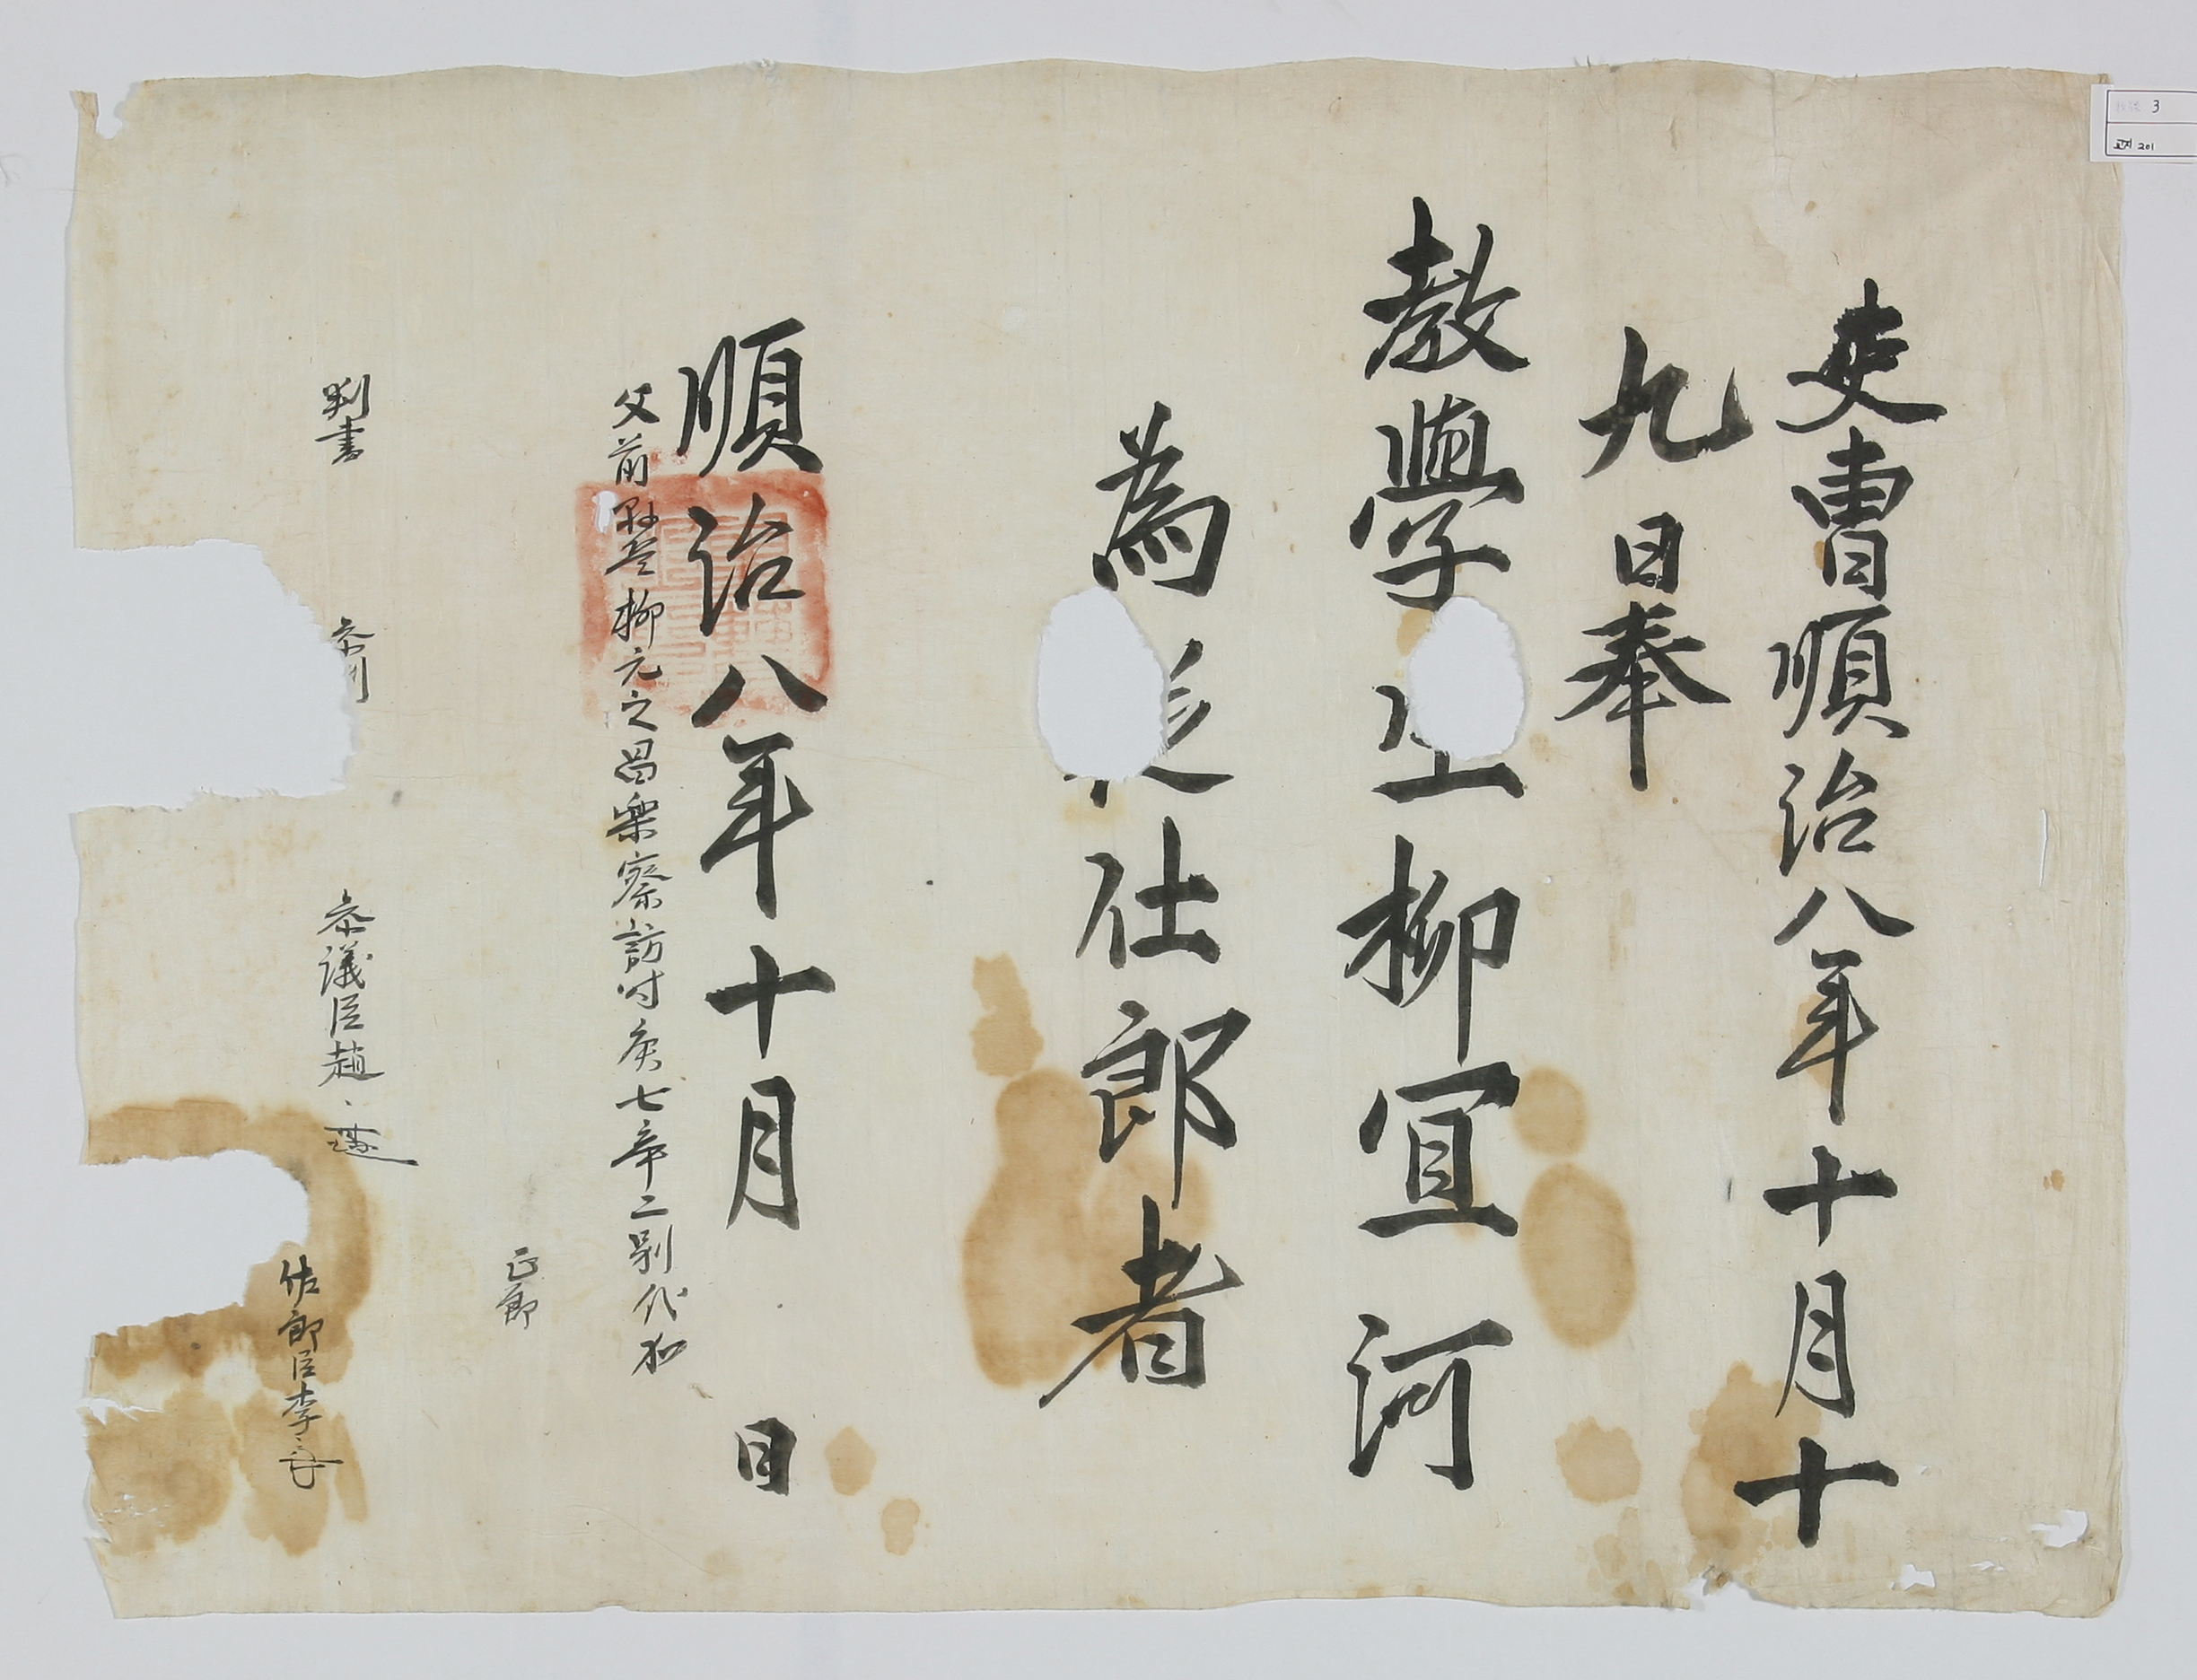 吏曹順治八年十月十
九日奉
教學生柳宜河
為從仕郎者
順治八年十月 日
父前縣監柳元之昌樂察訪時庚七辛二別代加
正郎
判書 參判 參議臣趙
佐郎臣李
3
교지 201